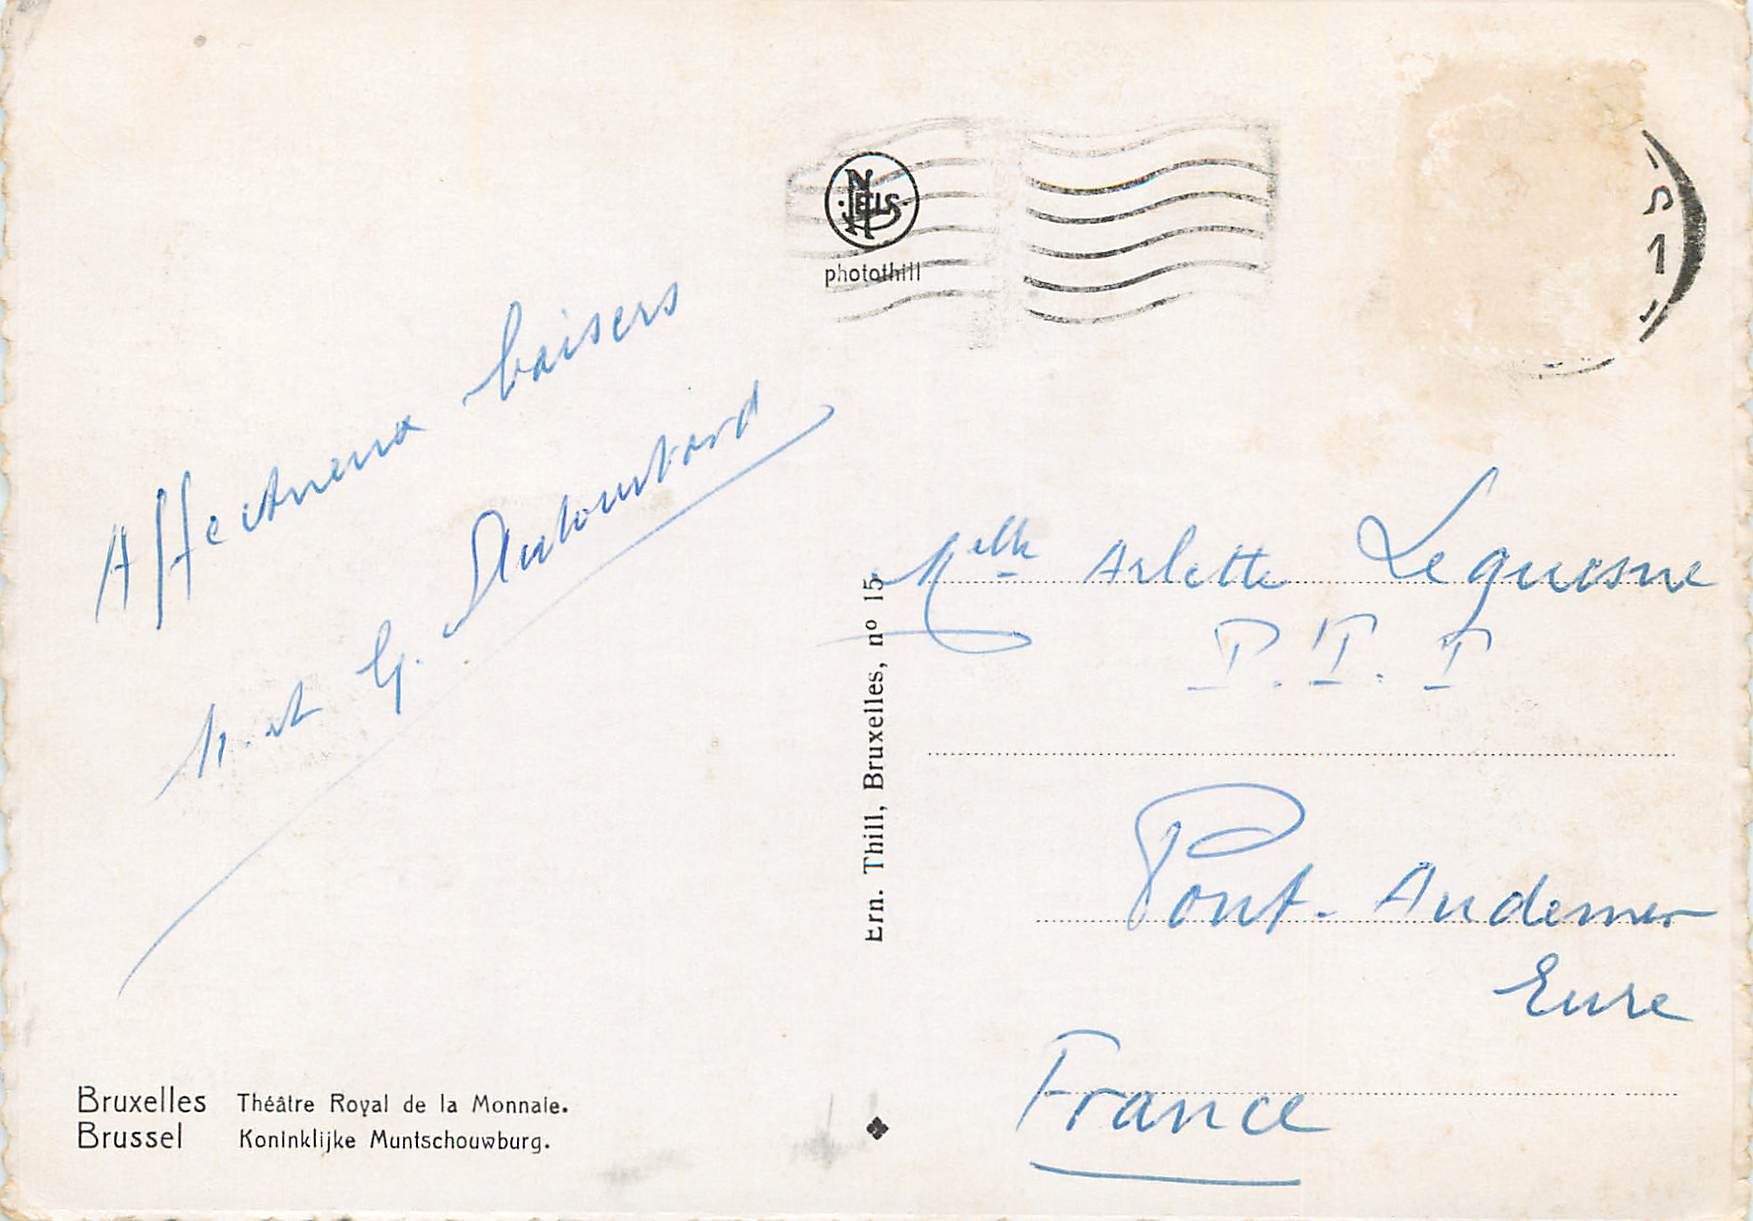 Affectueux baisers
et G.
NELS
photothill
Ern. Thill, Bruxelles, nº 15
Melle Arlette Lequesne
P. T. T
Pont-Audemer
Eure
France
Bruxelles Théâtre Royal de la Monnaie.
Brussel Koninklijke Muntschouwburg.